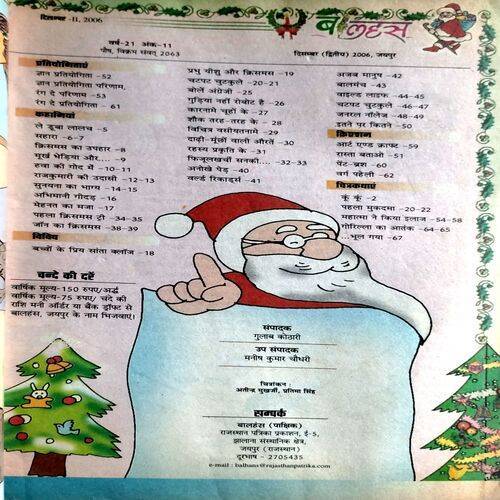 दिसम्बर -II, 2006
बालहंस
वर्ष-21 अंक-11
पौष, विक्रम संवत् 2063
दिसम्बर (द्वितीय) 2006, जयपुर
प्रतियोगिताएं
ज्ञान प्रतियोगिता -52
ज्ञान प्रतियोगिता परिणाम,
रंग दे परिणाम -53
रंग दे प्रतियोगिता - 61
कहानियां
ले डूबा लालच -5
सहारा -6-7
क्रिसमस का उपहार -8
मूर्ख भेड़िया और.... -9
हवा की गोद में -10-11
राजकुमारी की उदासी -12-13
सुनयना का भाग्य -14-15
अभिमानी गीदड़ -16
मेहनत का मजा -17
पहला क्रिसमस ट्री -34-35
जॉन का क्रिसमस -38-39
विविध
बच्चों के प्रिय सांता क्लॉज -18
प्रभु यीशु और क्रिसमस -19
चटपट चुटकुले -20-21
बोलें अंग्रेजी -25
गुड़िया नहीं रोबोट है -26
कारनामे चूहों के -27
शौक तरह-तरह के - 28
विचित्र वसीयतनामे -29
दाढ़ी-मूंछों वाली औरतें -30
रहस्य प्रकृति के -31
फिजूलखर्ची सनकी.... -32-33
अनोखे पेड़ -40
वर्ल्ड रिकार्ड्स -41
अजब मानुष -42
बालमंच -43
वाइल्ड लाइफ -44-45
चटपट चुटकुले -46-47
जनरल नॉलेज -48-49
इतने पर कितने -50
क्रिएशन
आर्ट एण्ड क्राफ्ट -59
रास्ता बताओ -51
पेंट-ब्रश -60
वर्ग पहेली -62
चित्रकथाएं
कूं कूं -2
पहला मुकदमा -20-22
महात्मा ने किया इलाज -54-58
गोरिल्ला का आतंक -64-65
...भूल गया -67
चन्दे की दरें
वार्षिक मूल्य-150 रुपए/अर्द्ध
वार्षिक मूल्य-75 रुपए/ चंदे की
राशि मनी ऑर्डर या बैंक ड्राफ्ट से
बालहंस, जयपुर के नाम भिजवाएं।
संपादक
गुलाब कोठारी
उप संपादक
मनीष कुमार चौधरी
चित्रांकन :
अतीन्द्र मुखर्जी, प्रतिमा सिंह
सम्पर्क
बालहंस (पाक्षिक)
राजस्थान पत्रिका प्रकाशन, ई-5,
झालाना संस्थानिक क्षेत्र,
जयपुर (राजस्थान)
दूरभाष - 2705435
e-mail : balhans@rajasthanpatrika.com